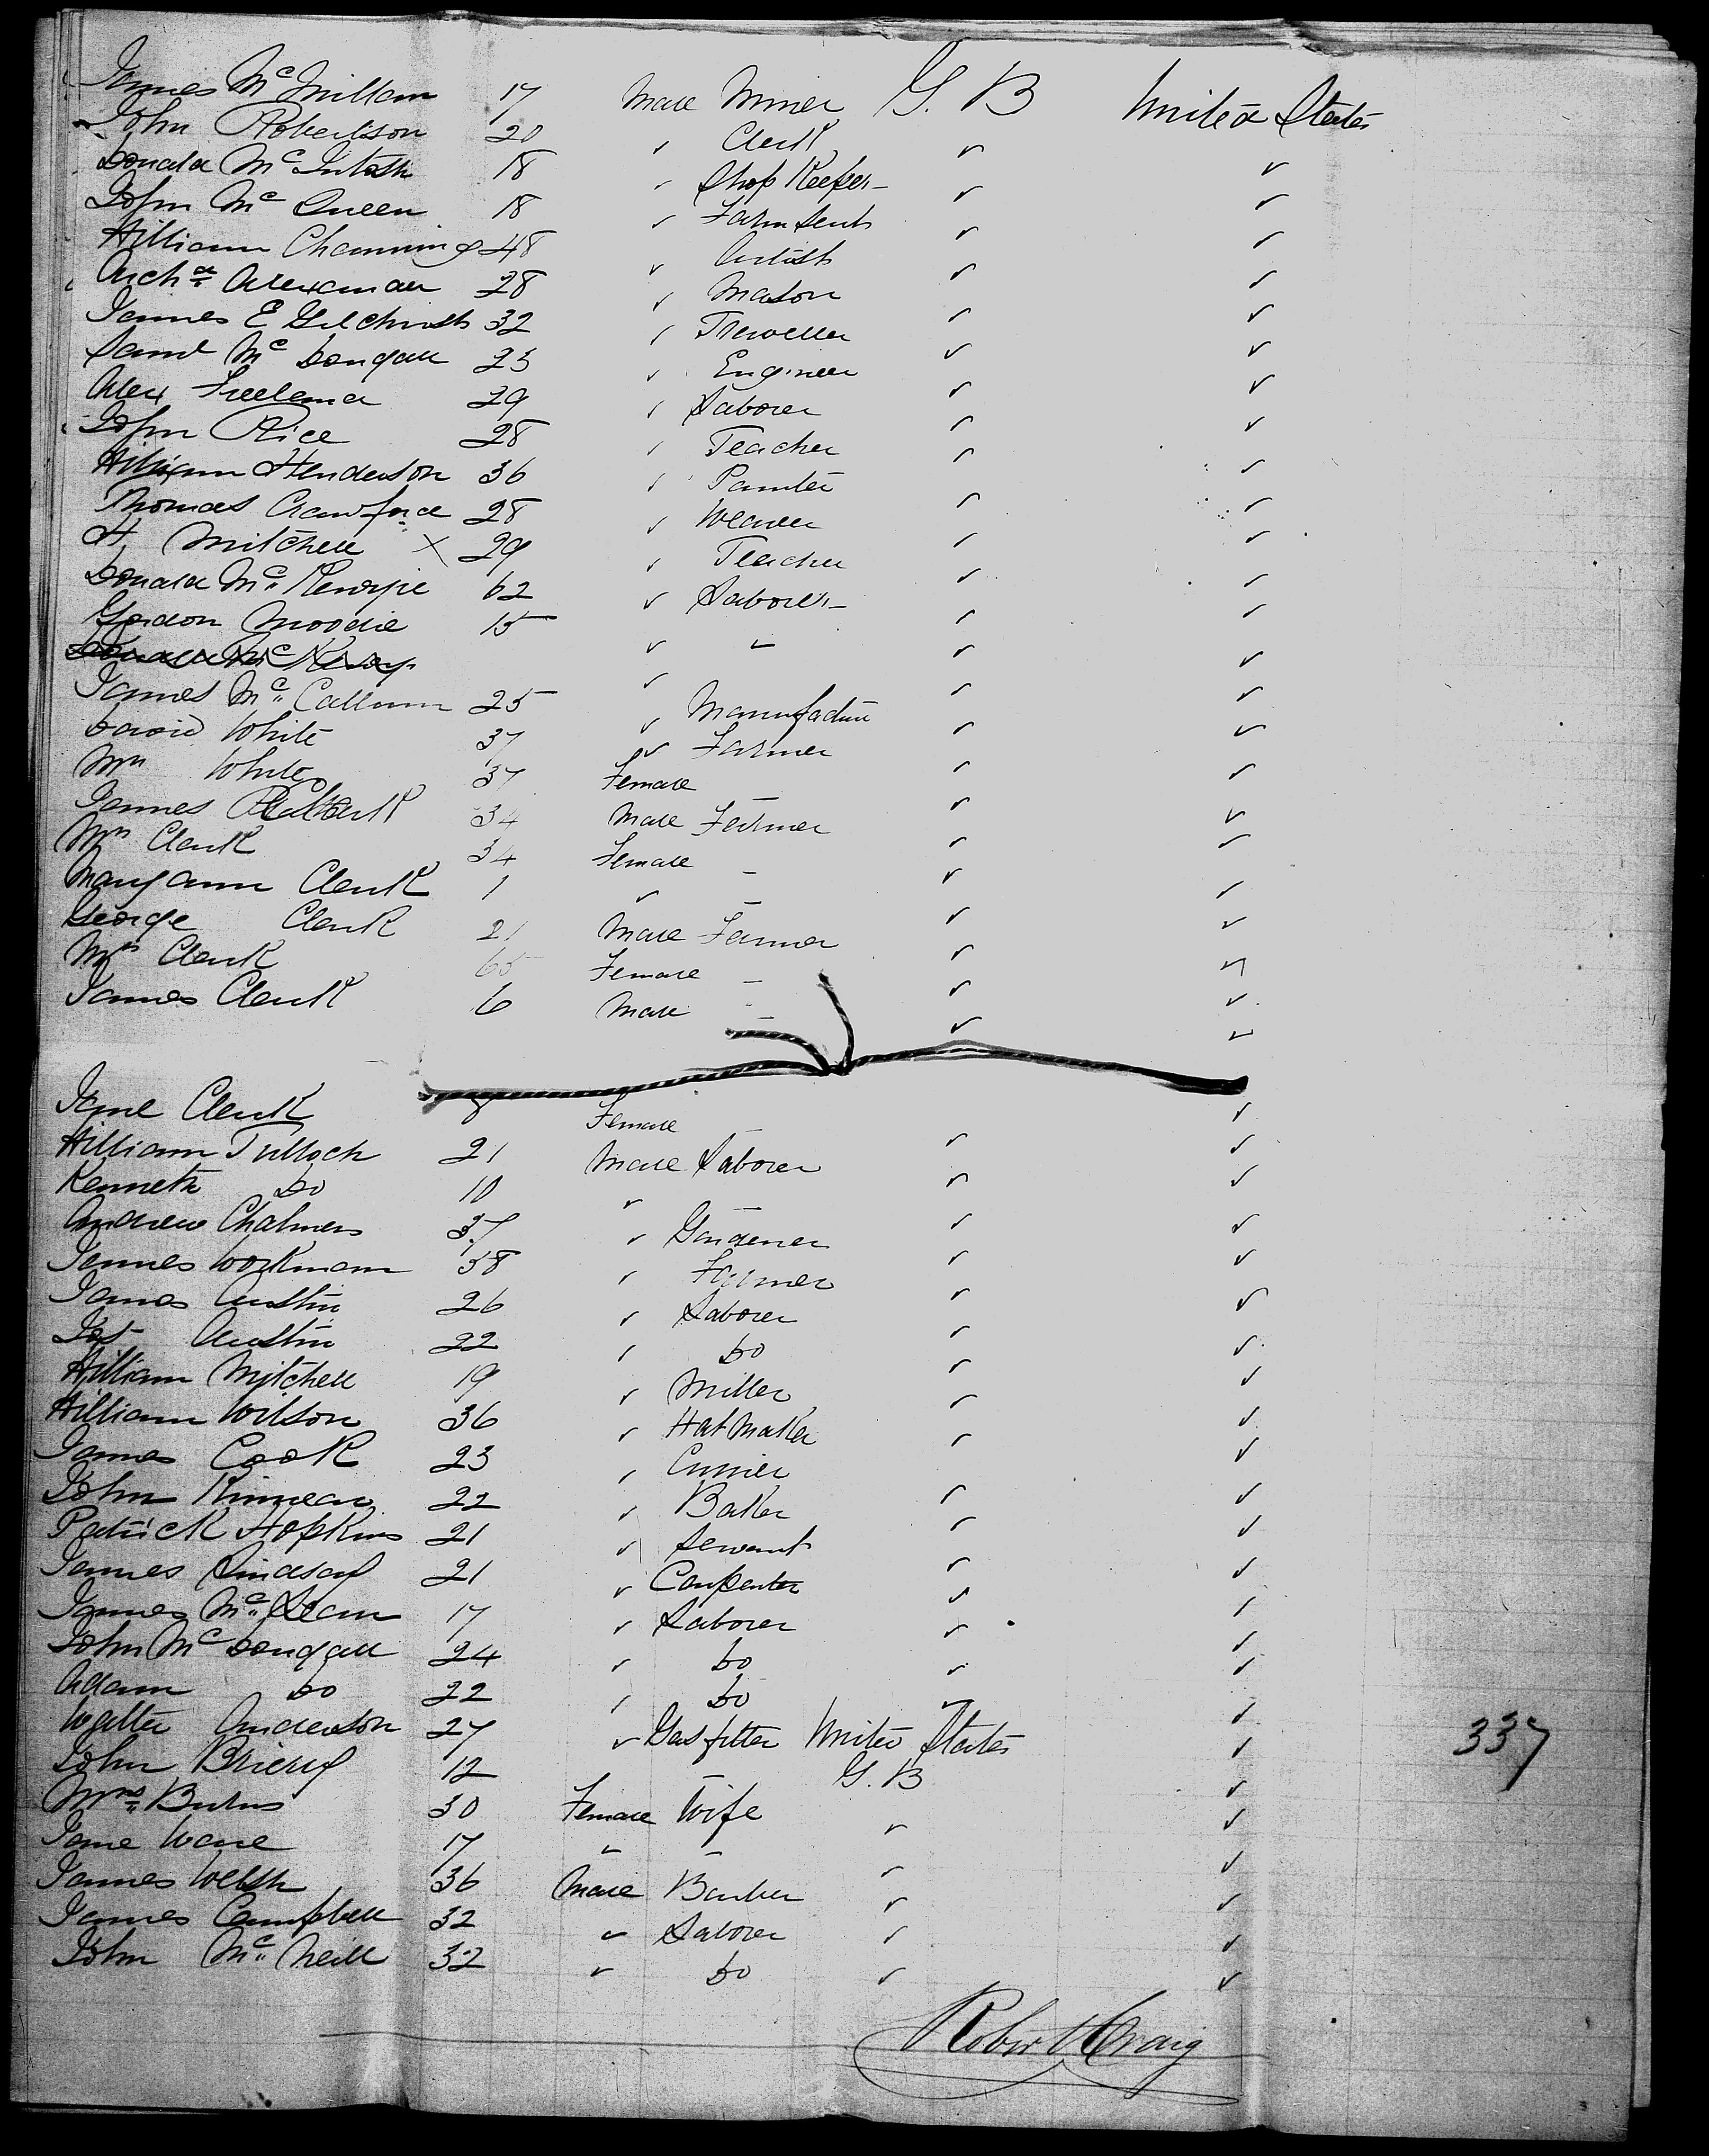 James McMillan 17 Male Miner G. B United States
John Robertson 20 " Clerk " "
Donald McIntosh 18 " Shop Keeper " "
John McQueen 18 " Farm Servt " "
William Channing 48 " Artist " "
Archd Alexander 28 " Mason " "
James E Gilchrist 32 " Traveller " "
Saml McDougall 23 " Engineer " "
Alex 29 " Laborer " "
John Rice 28 " Teacher " "
William Henderson 36 " Painter " "
Thomas Crawford 28 " Weaver " "
H Mitchell X 29 " Teacher " "
Donald McKenzie 62 " Laborer " "
Gordon Moodie 15 " " " "
James McCallum 25 " Manufactur " "
David White 37 " Farmer " "
Mrs White 37 Female – " "
James Clerk 34 Male Farmer " "
Mrs Clerk 34 Female – " "
Maryann Clerk 1 " – " "
George Clerk 21 Male Farmer " "
Mrs Clerk 65 Female – " "
James Clerk 6 Male – " "
Jane Clerk Female "
William Tulloch 21 Male Laborer " "
Kenneth Do 10 " – " "
Andrew Chalmers 37 " Gardener " "
James Workman 38 " Farmer " "
James Austin 26 " Laborer " "
Jas Austin 22 " Do " "
William Mitchell 19 " Miller " "
William Wilson 36 " Hat Maker " "
James Cook 23 " Currier " "
John Kinnear 22 " Baker " "
Patrick Hopkins 21 " Servant " "
James Lindsay 21 " Carpenter " "
James McLean 17 " Laborer " "
John McDougall 24 " Do " "
Adam Do 22 " Do " "
Walter Anderson 27 " Gasfitter United States "
John Brierly 12 – G. B "
Mrs Burns 30 Female Wife " "
Jane Ware 17 " – " "
James Welsh 36 Male Barber " "
James Campbell 32 " Laborer " "
John McNeill 32 " Do " "
337
Robert Craig